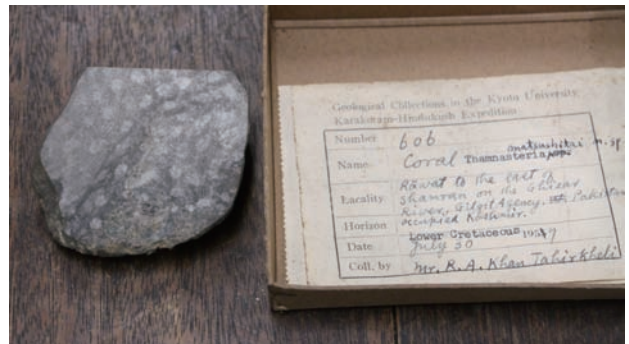 Geological Collections in the Kyoto University
Karakoram-Hindukush Expedition
Number 606
Name Coral Thamnasteria matsushitai n. sp
Locality Rawat to the east of
Shamran on the Ghizar
River, Gilgit Agency. Pakistan
occupied Kashmir.
Horizon Lower Cretaceous
Date July 30 1957
Coll. by Mr. R. A. Khan Tahirkheli